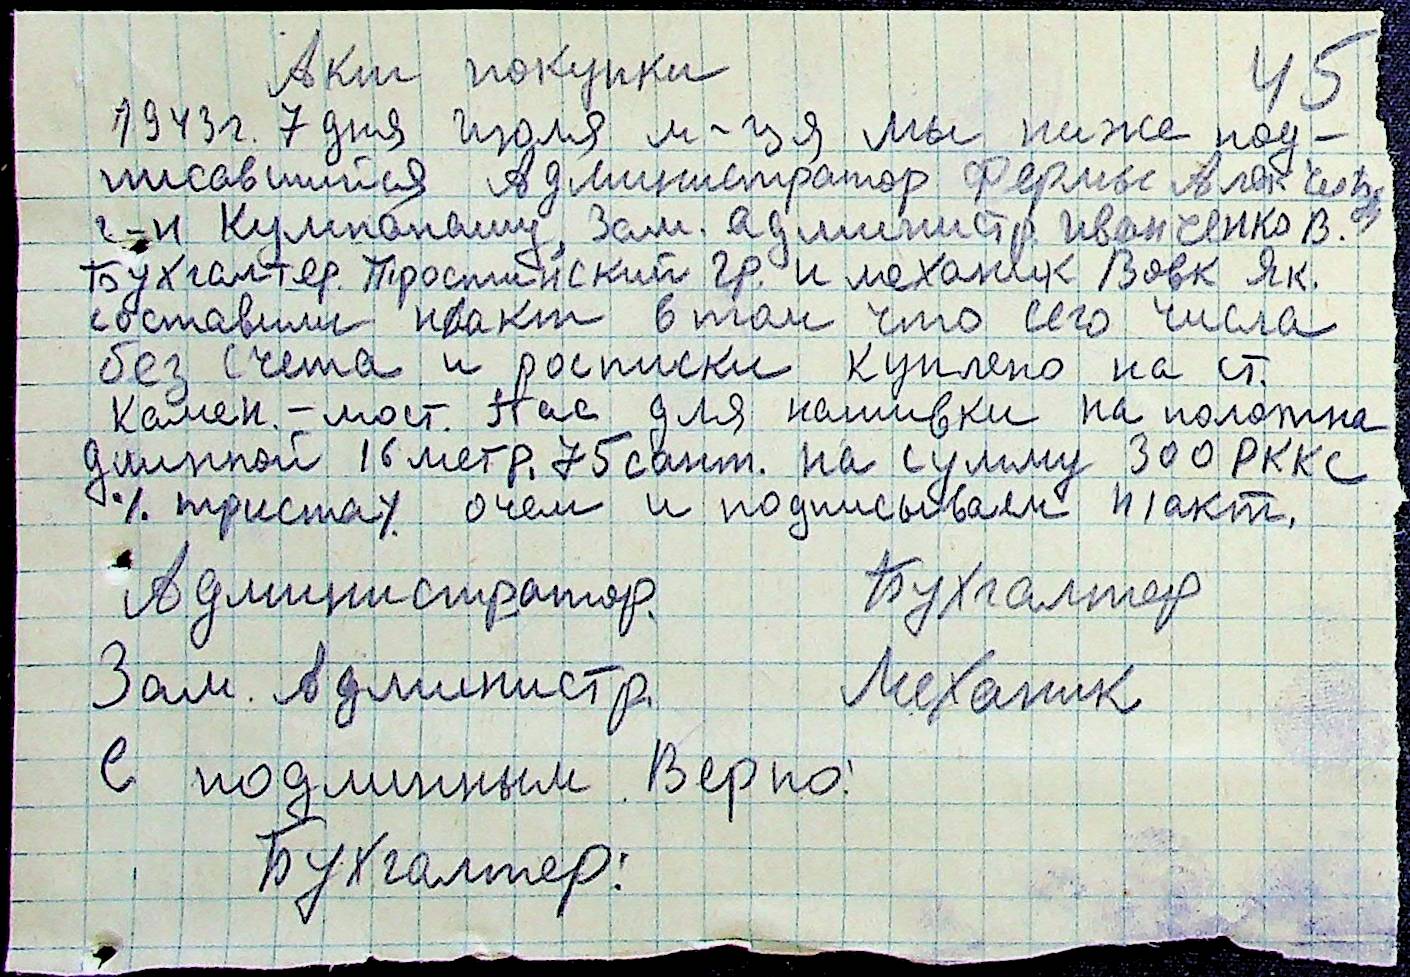 Акт покупки 45
1943г. 7 дня июля м-ця мы ниже под-
писавшийся Администратор Фермы
г-н Кумпанашу, Зам. администр. Иванченко В.
Бухгалтер. Тростинский Гр. и механик Вовк Як.
составили н/акт в том что сего числа
без счета и росписки куплено на ст.
Камен.-мост. Пас для нашивки на полотна
длинной 16 метр. 75 сант. на сумму 300 РККС
٪. триста٪. очем и подписываем н/акт.
Администратор. Бухгалтер
Зам. Администр. Механик
С подлинным Верно:
Бухгалтер: